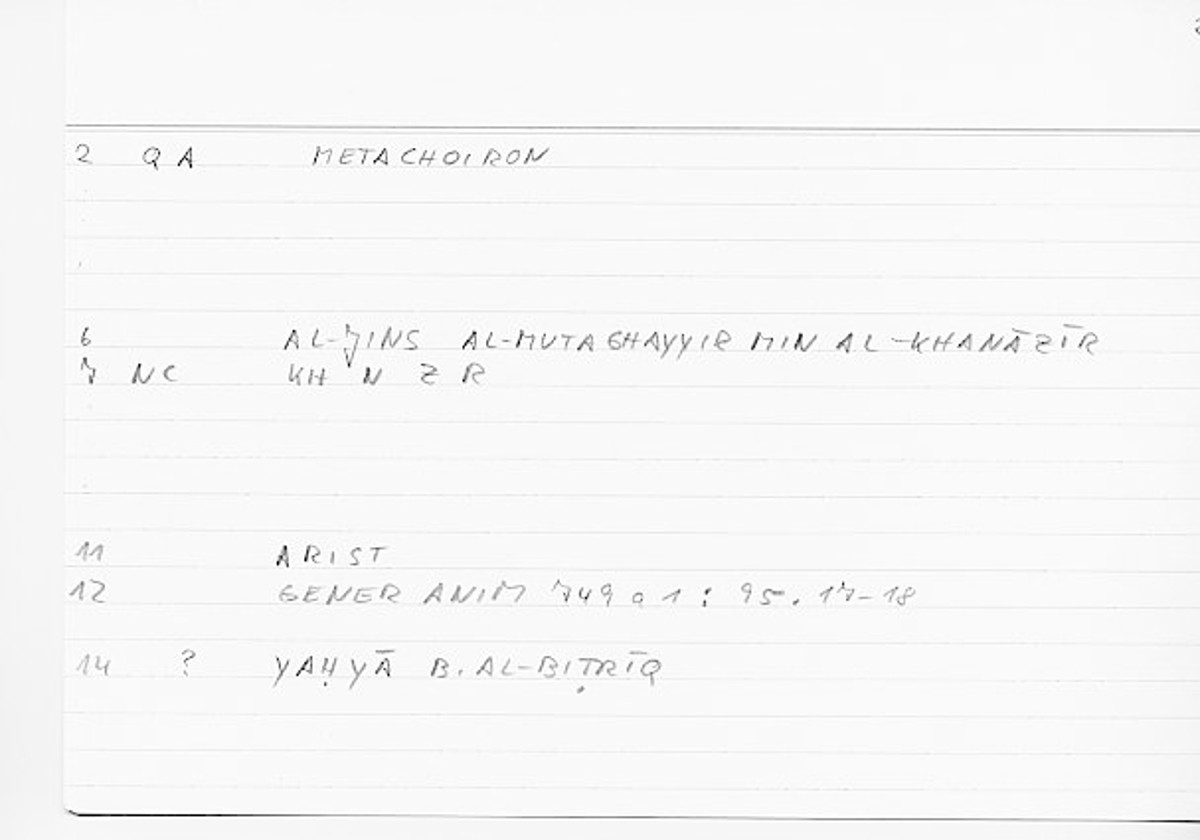 2 QA METACHOIRON
6 AL-JINS AL-MUTAGHAYYIR MIN AL-KHANĀZĪR
7 NC KH N Z R
11 ARIST
12 GENER ANIM 749 a 1 : 95.17-18
14 ? YAḤYĀ B. AL-BIṬRĪQ